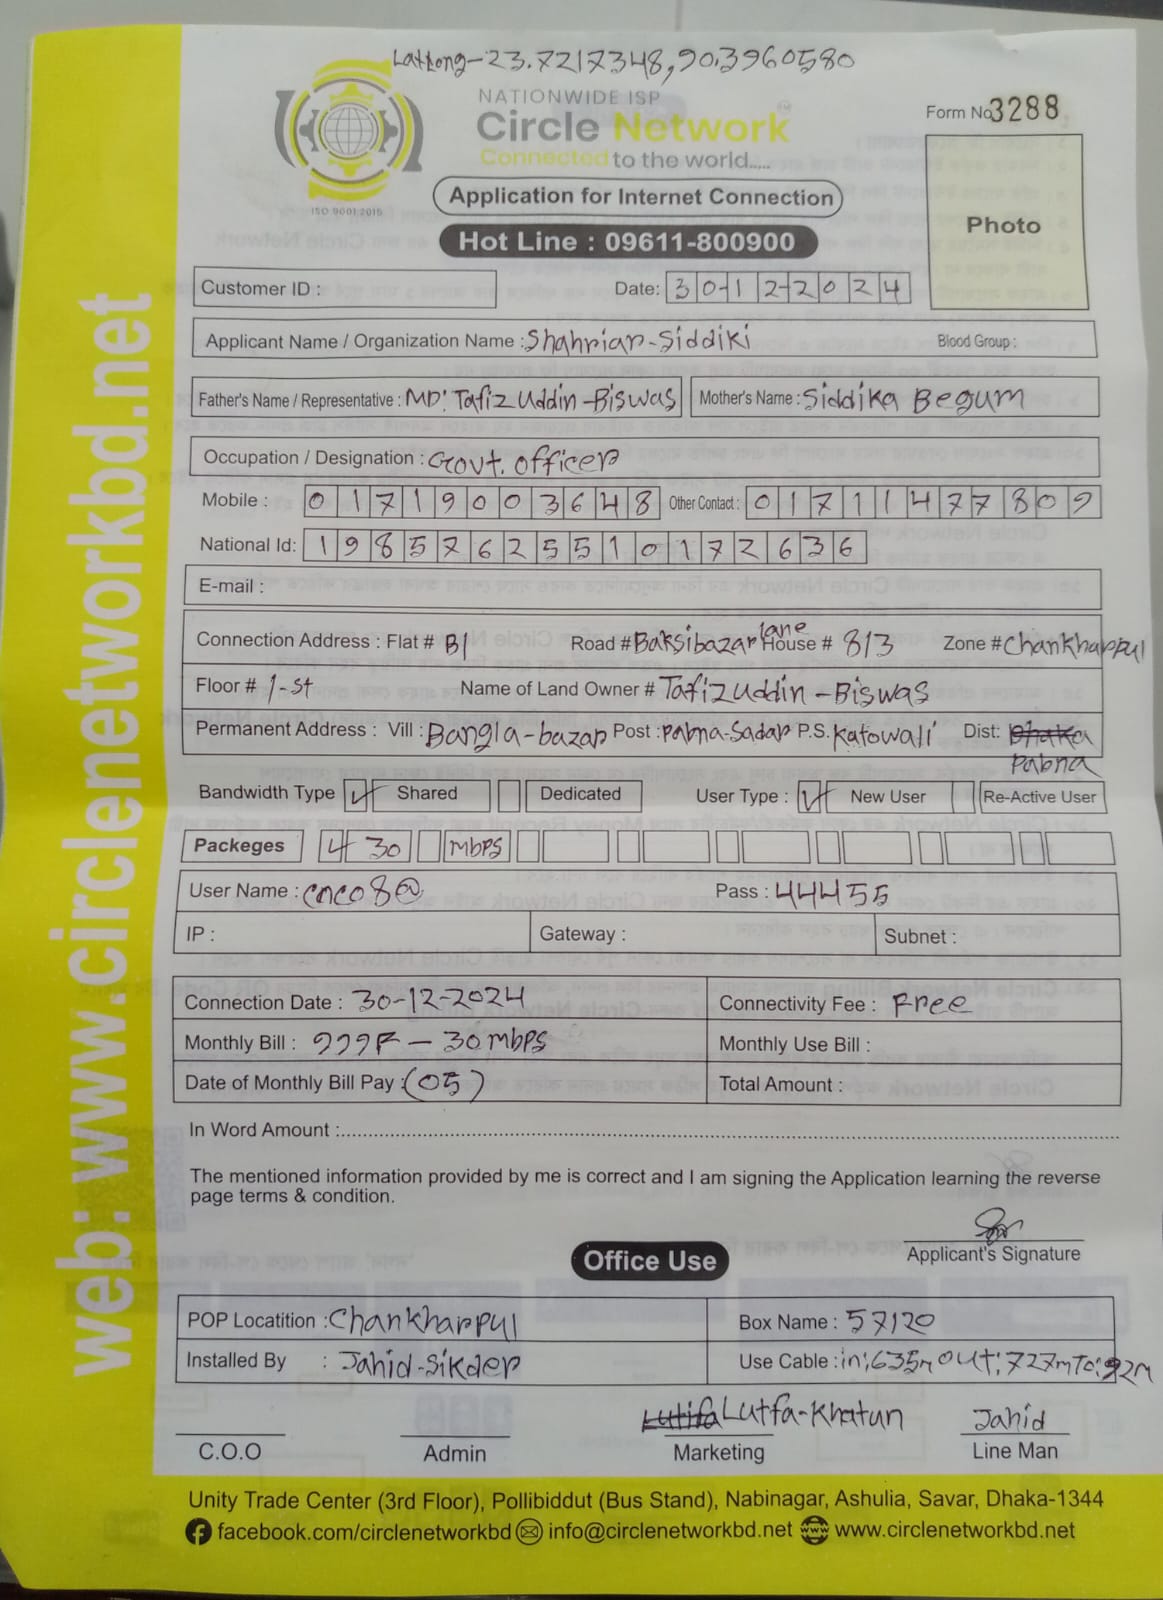 Latlong-23.7217348,90.3960580
NATIONWIDE ISP
Circle Network
TM
Connected to the world.....
ISO 9001:2015
Form No 3288
Application for Internet Connection
Photo
Hot Line : 09611-800900
Customer ID :
Date: 30-12-2024
Applicant Name / Organization Name : Shahriar-Siddiki Blood Group :
Father's Name / Representative : MD: Tafiz Uddin-Biswas Mother's Name : Siddika Begum
Occupation / Designation : Govt. officer
Mobile : 01719003648 Other Contact : 01711477809
National Id: 19857625510172636
E-mail :
Connection Address : Flat # B1 Road # Baksibazar lane House # 8/3 Zone # Chankharpul
Floor # 1-st Name of Land Owner # Tafiz uddin-Biswas
Permanent Address : Vill : Bangla-bazar Post : Pabna-Sadar P.S. Katowali Dist: Dhaka
Pabna
Bandwidth Type Shared Dedicated User Type : New User Re-Active User
Packeges 4 30 mbps
User Name : cnco8@ Pass : 44455
IP : Gateway : Subnet :
Connection Date : 30-12-2024 Connectivity Fee : Free
Monthly Bill : 999F - 30mbps Monthly Use Bill :
Date of Monthly Bill Pay : (05) Total Amount :
In Word Amount :
The mentioned information provided by me is correct and I am signing the Application learning the reverse
page terms & condition.
Applicant's Signature
Office Use
POP Locatition : Chankharpul Box Name : 57120
Installed By : Jahid-Sikder Use Cable : in:635m out:727m To:92m
Lutifa Lutfa-Khatun Jahid
C.O.O Admin Marketing Line Man
Unity Trade Center (3rd Floor), Pollibiddut (Bus Stand), Nabinagar, Ashulia, Savar, Dhaka-1344
facebook.com/circlenetworkbd info@circlenetworkbd.net www.circlenetworkbd.net
web: www.circlenetworkbd.net